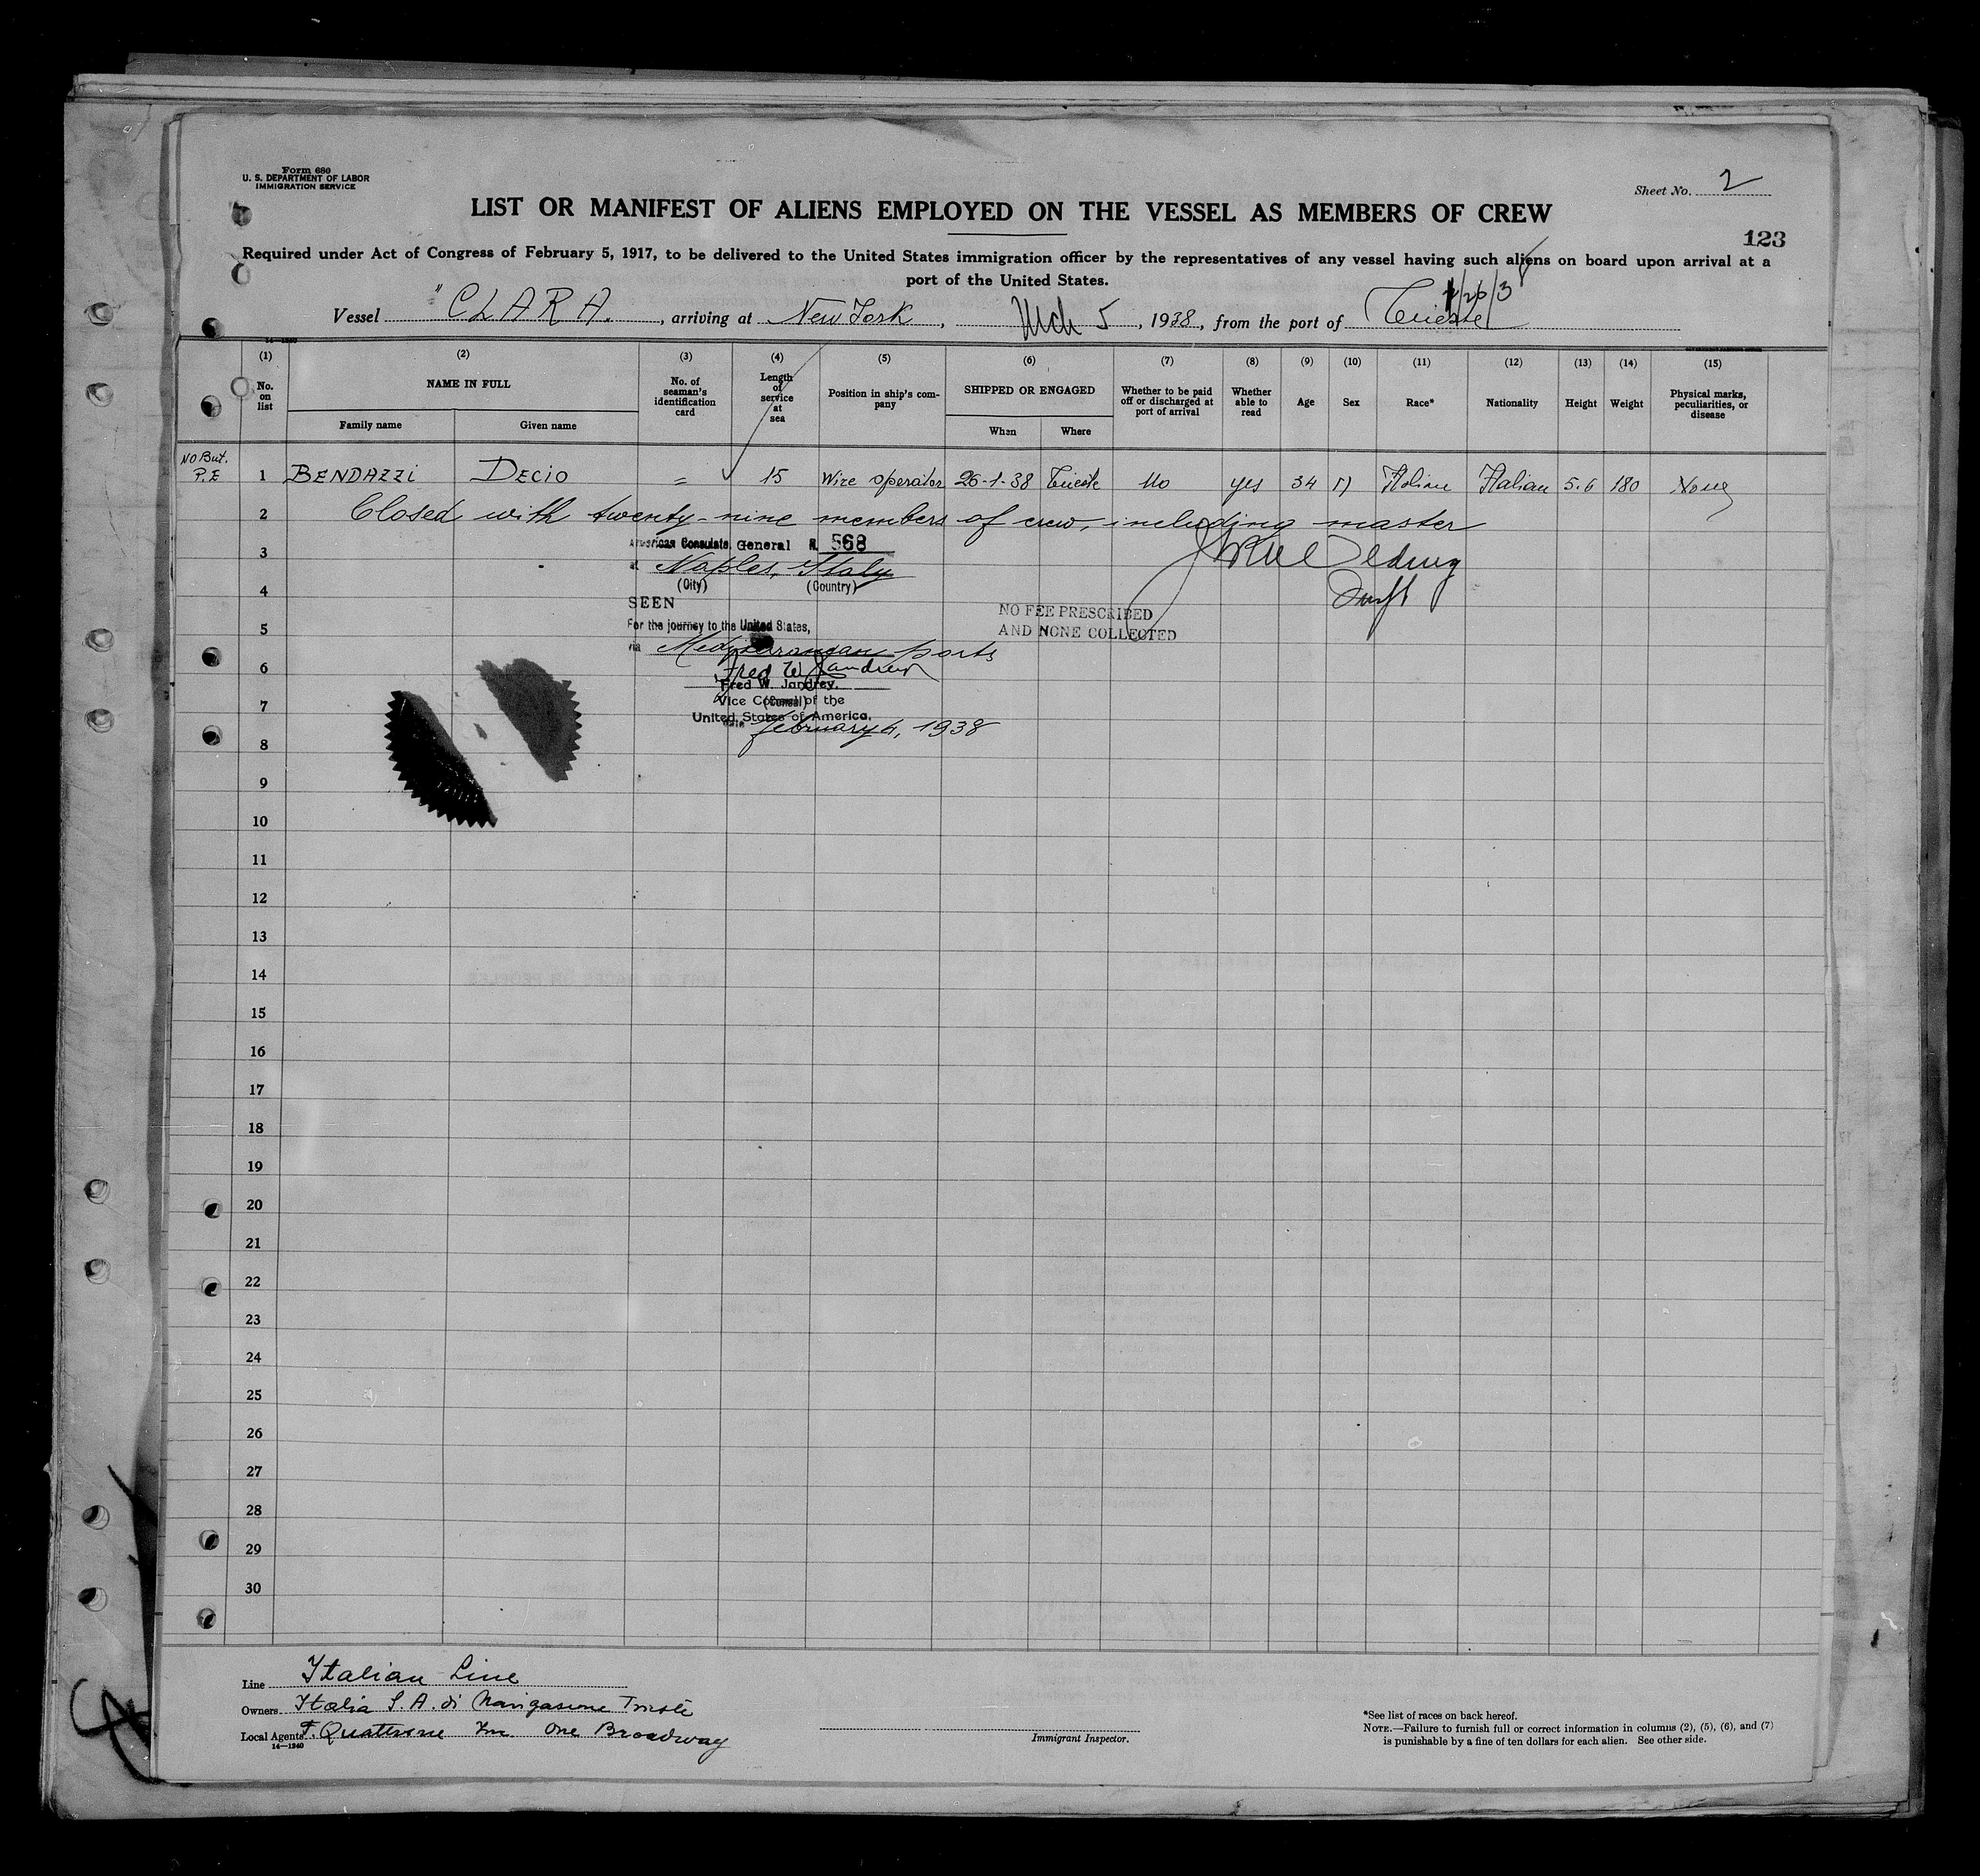 Form 680
U. S. DEPARTMENT OF LABOR
IMMIGRATION SERVICE
Sheet No. 2
LIST OR MANIFEST OF ALIENS EMPLOYED ON THE VESSEL AS MEMBERS OF CREW
123
Required under Act of Congress of February 5, 1917, to be delivered to the United States immigration officer by the representatives of any vessel having such aliens on board upon arrival at a
port of the United States.
Vessel "CLARA, arriving at New York, Mch 5, 1938, from the port of Trieste
(1) (2) (3) (4) (5) (6) (7) (8) (9) (10) (11) (12) (13) (14) (15)
No. on list NAME IN FULL No. of seaman's identification card Length of service at sea Position in ship's company SHIPPED OR ENGAGED Whether to be paid off or discharged at port of arrival Whether able to read Age Sex Race* Nationality Height Weight Physical marks, peculiarities, or disease
Family name Given name When Where
NO But.
P.E 1 BENDAZZI DECIO = 15 Wire operator 26-1-38 Trieste No yes 34 Italian Italian 5.6 180 None
2 Closed with twenty-nine members of crew, including master
3 American Consulate General 568
at Naples, Italy
(City) (Country)
4
SEEN
NO FEE PRESCRIBED
AND NONE COLLECTED
5 For the journey to the United States,
via Mediterranean ports
6
Fred W. Jandrey
Fred W. Jandrey,
7 Vice Consul of the
(Consul)
United States of America.
Date February 4, 1938
8
9
10
11
12
13
14
15
16
17
18
19
20
21
22
23
24
25
26
27
28
29
30
Line Italian Line
Owners Italia S.A. di Navigazione Trieste
Local Agents F. Quattrone Inc. One Broadway
14—1240
Immigrant Inspector.
*See list of races on back hereof.
NOTE.—Failure to furnish full or correct information in columns (2), (5), (6), and (7)
is punishable by a fine of ten dollars for each alien. See other side.